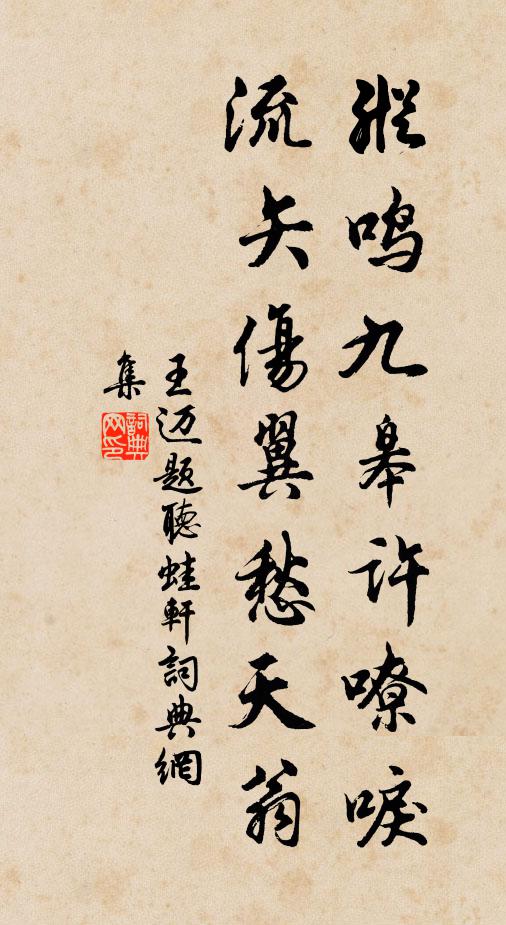 縱鳴九皋許嘹唳
流矢傷翼愁天翁
王迈题聽蛙軒詞典網
集
詞典网印